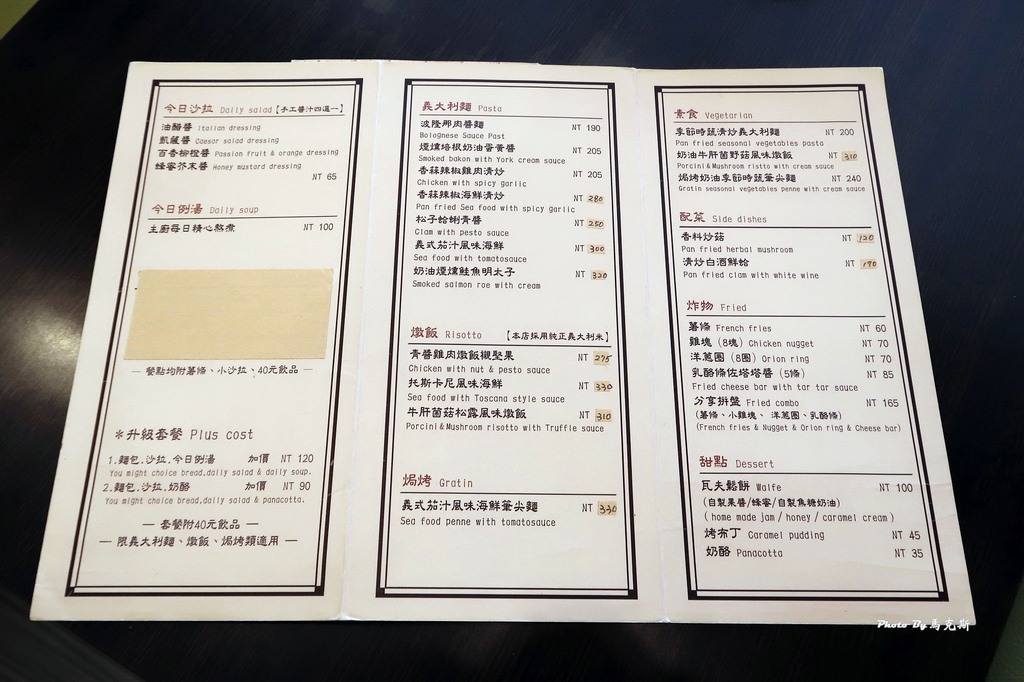 今日沙拉 Daily salad【手工醬汁四選一】
油醋醬 Italian dressing
凱薩醬 Caesar salad dressing
百香柳橙醬 Passion fruit & orange dressing
蜂蜜芥末醬 Honey mustard dressing
NT 65
今日例湯 Daily soup
主廚每日精心熬煮 NT 100
— 餐點均附薯條、小沙拉、40元飲品 —
＊升級套餐 Plus cost
1.麵包.沙拉.今日例湯 加價 NT 120
You might choice bread,daily salad & daily soup.
2.麵包.沙拉.奶酪 加價 NT 90
You might choice bread,daily salad & panacotta.
— 套餐附40元飲品 —
— 限義大利麵、燉飯、焗烤類適用 —
義大利麵 Pasta
波隆那肉醬麵 NT 190
Bolognese Sauce Past
煙燻培根奶油蛋黃醬 NT 205
Smoked bacon with York cream sauce
香蒜辣椒雞肉清炒 NT 205
Chicken with spicy garlic
香蒜辣椒海鮮清炒 NT 280
Pan fried Sea food with spicy garlic
松子蛤蜊青醬 NT 250
Clam with pesto sauce
義式茄汁風味海鮮 NT 300
Sea food with tomatosauce
奶油煙燻鮭魚明太子 NT 320
Smoked salmon roe with cream
燉飯 Risotto 【本店採用純正義大利米】
青醬雞肉燉飯襯堅果 NT 275
Chicken with nut & pesto sauce
托斯卡尼風味海鮮 NT 330
Sea food with Toscana style sauce
牛肝菌菇松露風味燉飯 NT 310
Porcini&Mushroom risotto with Truffle sauce
焗烤 Gratin
義式茄汁風味海鮮筆尖麵 NT 330
Sea food penne with tomatosauce
素食 Vegetarian
季節時蔬清炒義大利麵 NT 200
Pan fried seasonal vegetables pasta
奶油牛肝菌野菇風味燉飯 NT 310
Porcini&Mushroom ristto with cream sauce
焗烤奶油季節時蔬筆尖麵 NT 240
Gratin seasonal vegetables penne with cream sauce
配菜 Side dishes
香料炒菇 NT 120
Pan fried herbal mushroom
清炒白酒鮮蛤 NT 170
Pan fried clam with white wine
炸物 Fried
薯條 French fries NT 60
雞塊 (8塊) Chicken nugget NT 70
洋蔥圈 (8圈) Orion ring NT 70
乳酪條佐塔塔醬 (5條) NT 85
Fried cheese bar with tar tar sauce
分享拼盤 Fried combo NT 165
(薯條、小雞塊、 洋蔥圈、乳酪條)
(French fries & Nugget & Orion ring & Cheese bar)
甜點 Dessert
瓦夫鬆餅 Walfe NT 100
(自製果醬/蜂蜜/自製焦糖奶油)
( home made jam / honey / caramel cream )
烤布丁 Caramel pudding NT 45
奶酪 Panacotta NT 35
Photo By 馬克斯